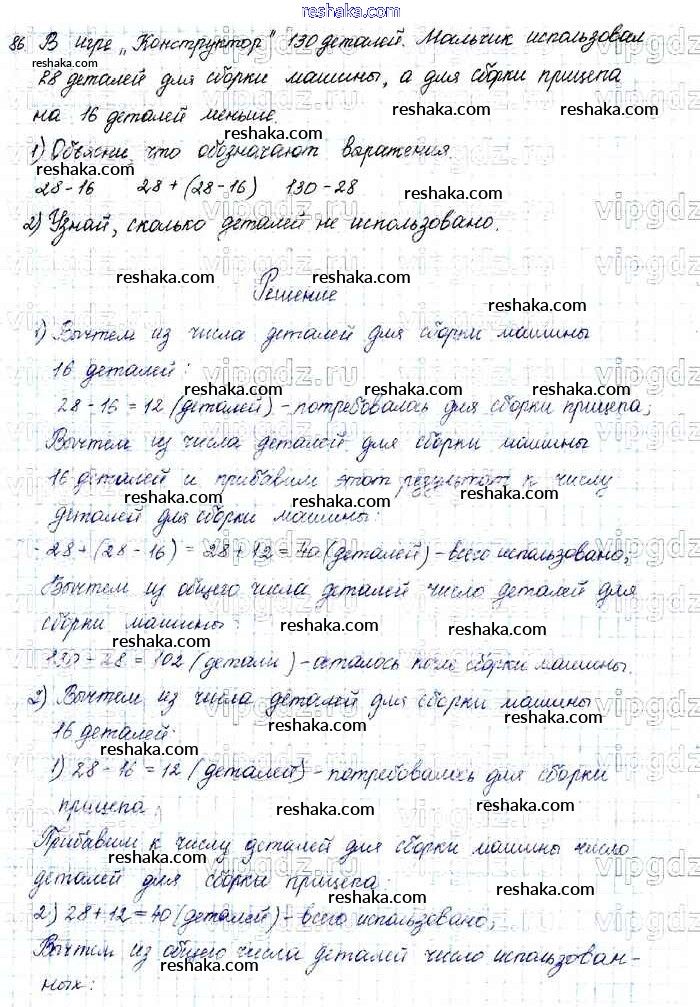 reshaka.com
86 В игре „Конструктор" 130 деталей. Мальчик использовал
28 деталей для сборки машины, а для сборки прицепа
на 16 деталей меньше.
1) Объясни, что обозначают выражения
28-16 28+(28-16) 130-28
2) Узнай, сколько деталей не использовано.
Решение
1) Вычтем из числа деталей для сборки машины
16 деталей:
28-16=12 (деталей) - потребовалось для сборки прицепа;
Вычтем из числа деталей для сборки машины
16 деталей и прибавим этот результат к числу
деталей для сборки машины:
28+(28-16)=28+12=40 (деталей) - всего использовано;
Вычтем из общего числа деталей число деталей для
сборки машины:
130-28=102 (детали) - осталось после сборки машины.
2) Вычтем из числа деталей для сборки машины
16 деталей:
1) 28-16=12 (деталей) - потребовалось для сборки
прицепа;
Прибавим к числу деталей для сборки машины число
деталей для сборки прицепа:
2) 28+12=40 (деталей) - всего использовано;
Вычтем из общего числа деталей число использован-
ных: